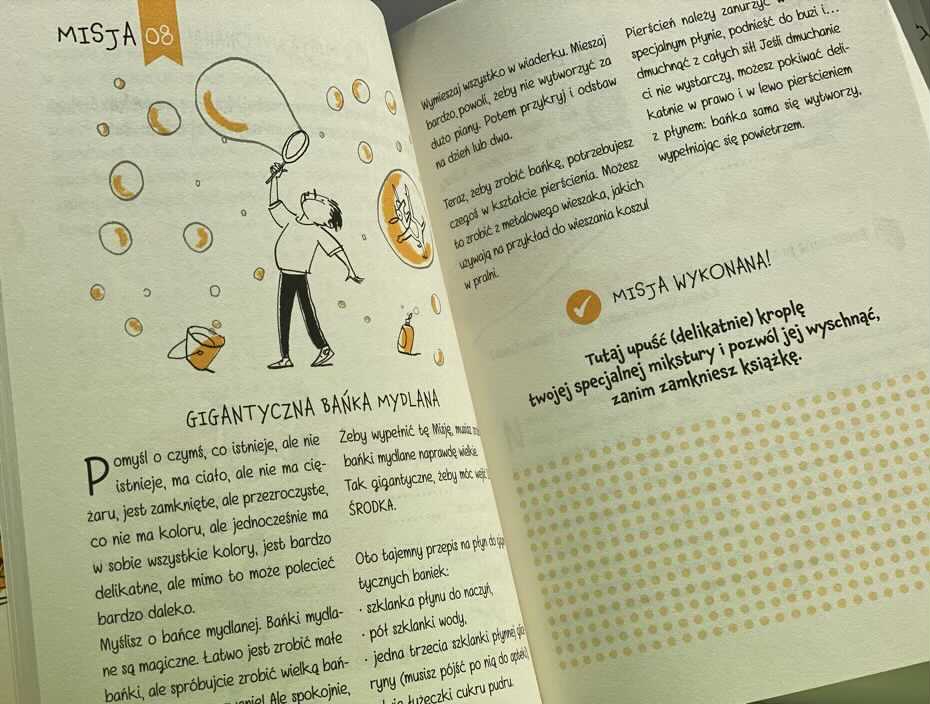 MISJA 08
GIGANTYCZNA BAŃKA MYDLANA
Pomyśl o czymś, co istnieje, ale nie
istnieje, ma ciało, ale nie ma cię-
żaru, jest zamknięte, ale przezroczyste,
co nie ma koloru, ale jednocześnie ma
w sobie wszystkie kolory, jest bardzo
delikatne, ale mimo to może polecieć
bardzo daleko.
Myślisz o bańce mydlanej. Bańki mydla-
ne są magiczne. Łatwo jest zrobić małe
bańki, ale spróbujcie zrobić wielką bań-
Ale spokojnie,
Żeby wypełnić tę Misję, musisz
bańki mydlane naprawdę wielkie.
Tak gigantyczne, żeby móc wejść
ŚRODKA.
Oto tajemny przepis na płyn do
tycznych baniek:
· szklanka płynu do naczyń,
· pół szklanki wody,
· jedna trzecia szklanki płynnej
ryny (musisz pójść po nią do apteki)
łyżeczki cukru pudru.
Wymieszaj wszystko w wiaderku. Mieszaj
bardzo powoli, żeby nie wytworzyć za
dużo piany. Potem przykryj i odstaw
na dzień lub dwa.
Teraz, żeby zrobić bańkę, potrzebujesz
czegoś w kształcie pierścienia. Możesz
to zrobić z metalowego wieszaka, jakich
używają na przykład do wieszania koszul
w pralni.
Pierścień należy zanurzyć w
specjalnym płynie, podnieść do buzi i...
dmuchnąć z całych sił! Jeśli dmuchanie
ci nie wystarczy, możesz pokiwać deli-
katnie w prawo i w lewo pierścieniem
z płynem: bańka sama się wytworzy,
wypełniając się powietrzem.
MISJA WYKONANA!
Tutaj upuść (delikatnie) kroplę
twojej specjalnej mikstury i pozwól jej wyschnąć,
zanim zamkniesz książkę.